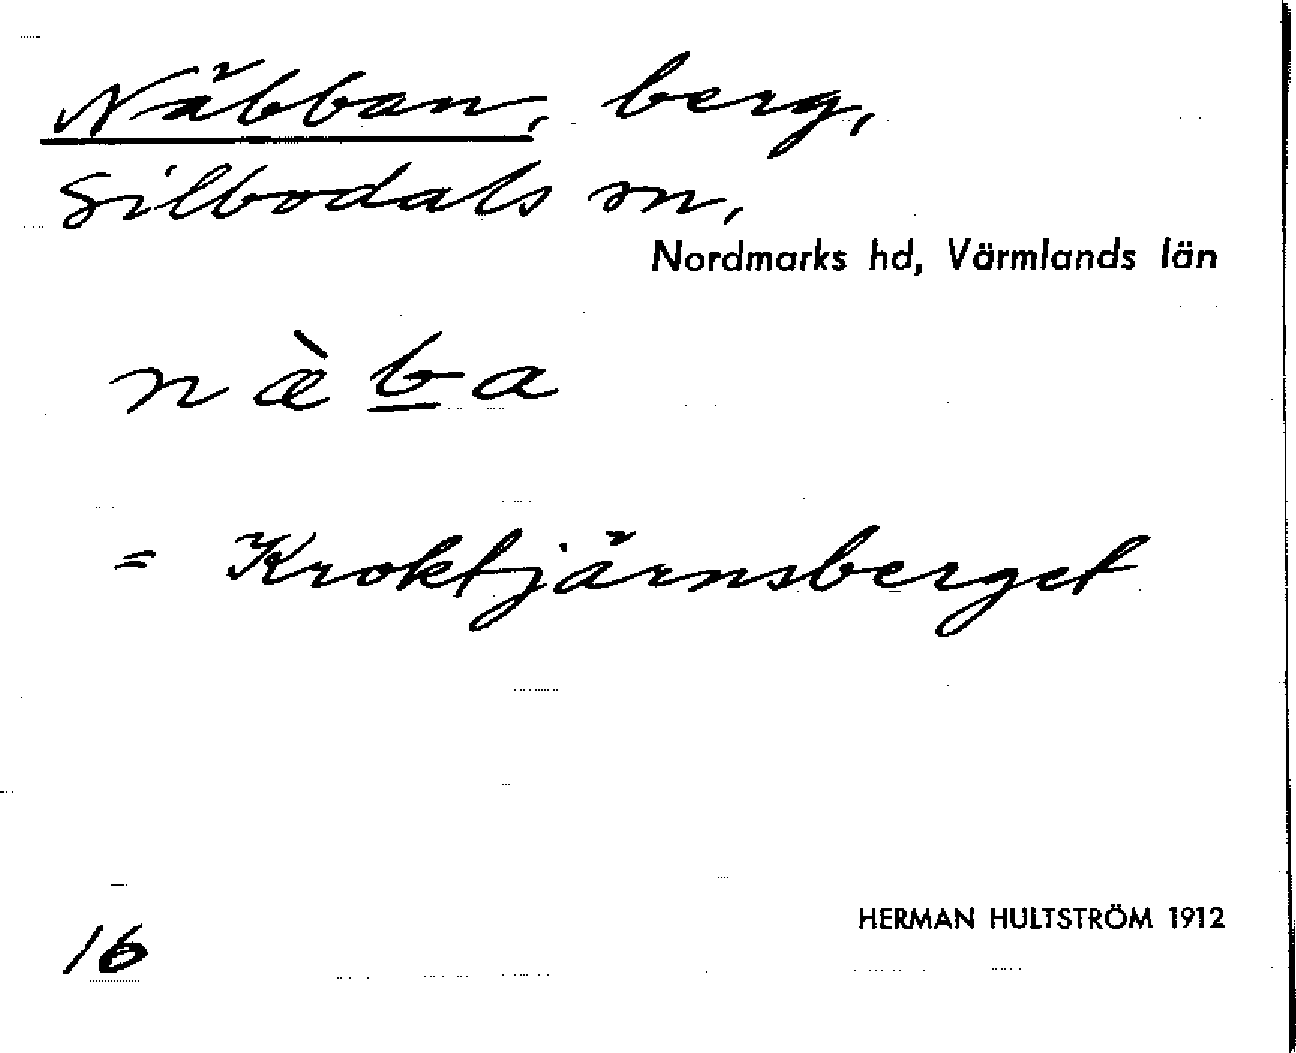 Näbban, berg,
Silbodals sn,
Nordmarks hd, Värmlands län
næ̀b̲a
= Kroktjärnsberget
16
HERMAN HULTSTRÖM 1912